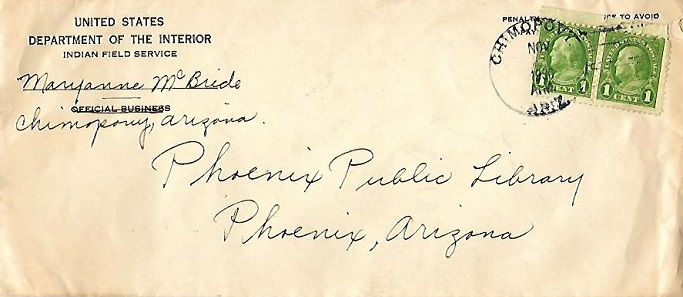 UNITED STATES
DEPARTMENT OF THE INTERIOR
INDIAN FIELD SERVICE
Maryanne McBride
OFFICIAL BUSINESS
Chimopovy, Arizona.
PENALTY
TO AVOID
CHIMOPOVY
NOV
ARIZ.
1 CENT 1
Phoenix Public Library
Phoenix, Arizona